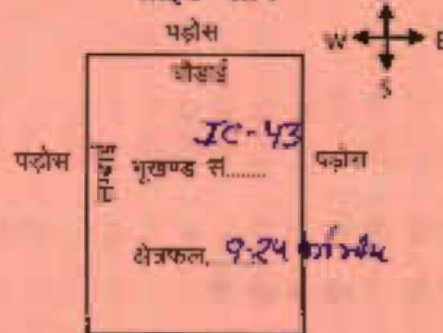 पड़ोस
W E
चौडाई
S
IC-43
पड़ोस लम्बाई भूखण्ड सं........ पड़ोस
क्षेत्रफल, 9.24